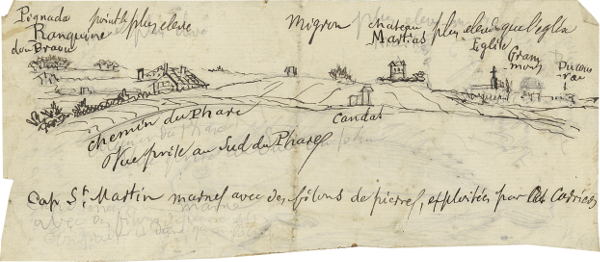 Pignada point le plus élevé Migron chateau plus élevé que l'église
Ranquine Martias Eglise
du Braou Gram
mont
Candat
chemin du Phare
Vue prise au Sud du Phare
Cap St Martin marnes avec des filons de pierres, exploitées par les Carriers